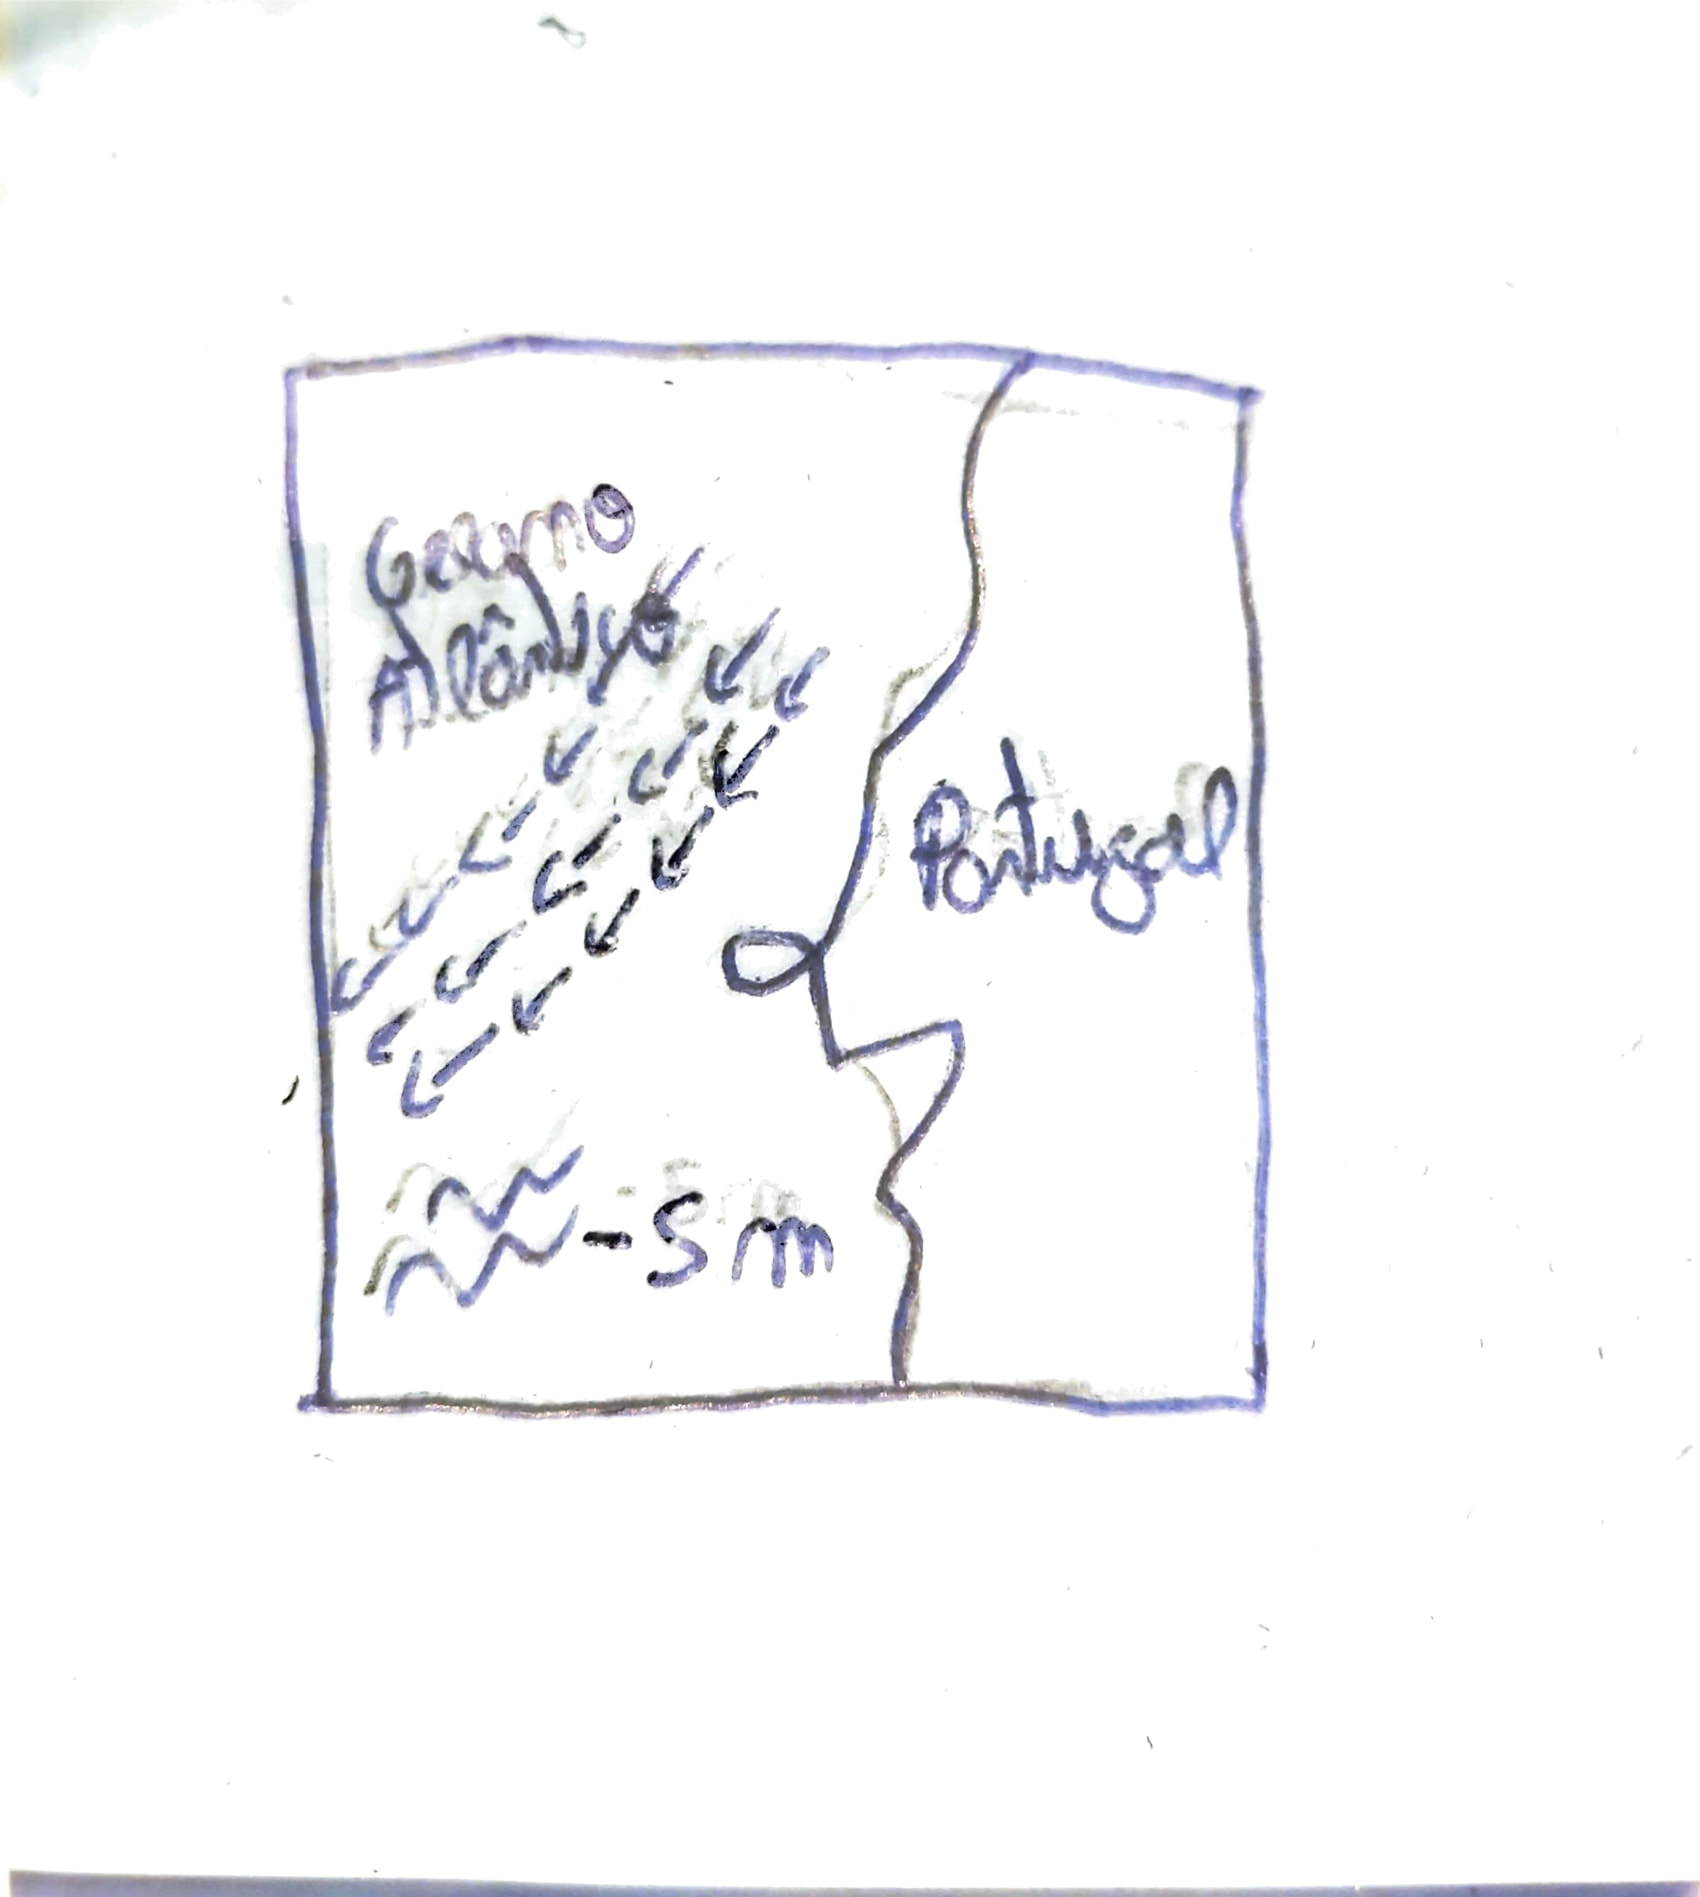 Oceano
Atlântico
Portugal
-5 m